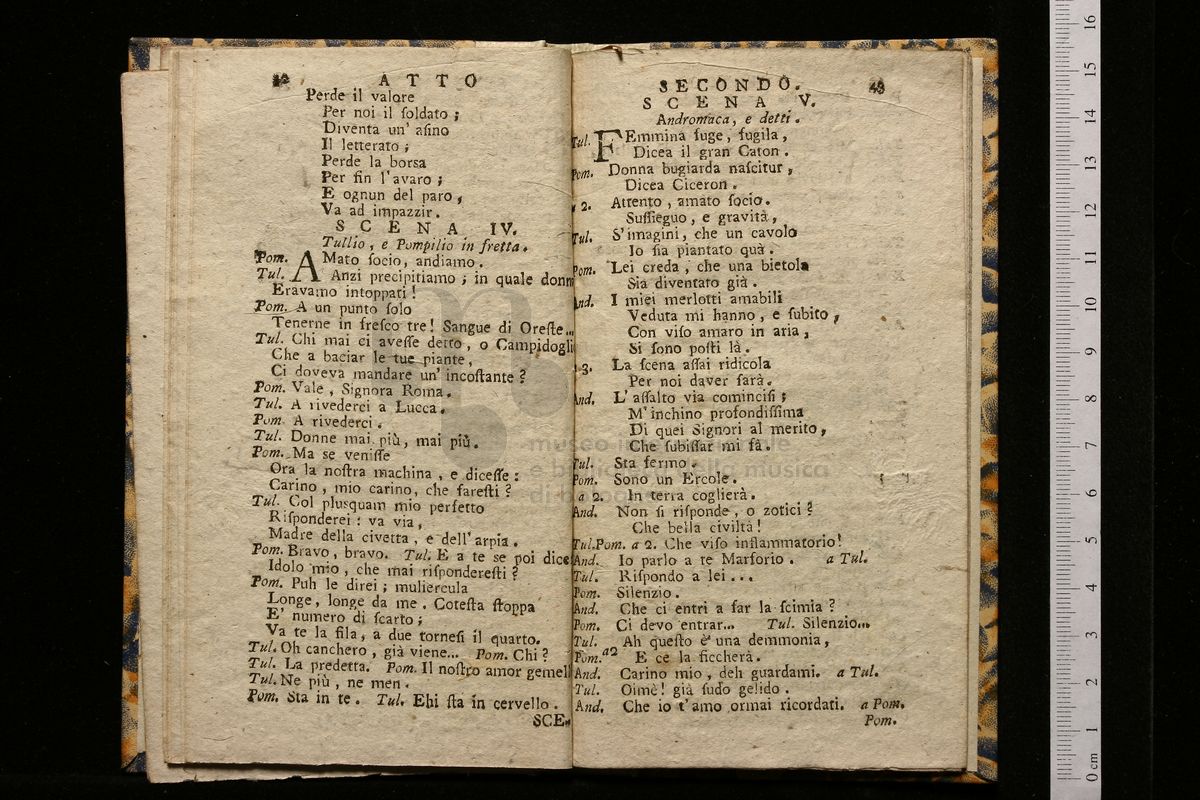 ATTO
Perde il valore
Per noi il ſoldato ;
Diventa un' aſino
Il letterato ;
Perde la borsa
Per fin l'avaro ;
E ognun del paro,
Va ad impazzir.
SCENA IV.
Tullio, e Pompilio in fretta.
Pom. AMato ſocio, andiamo.
Tul. Anzi precipitiamo ; in quale donn
Eravamo intoppati !
Pom. A un punto ſolo
Tenerne in freſco tre! Sangue di Oreſte...
Tul. Chi mai ci aveſſe detto, o Campidogli
Che a baciar le tue piante,
Ci doveva mandare un' incoſtante ?
Pom. Vale, Signora Roma.
Tul. A rivederci a Lucca.
Pom. A rivederci.
Tul. Donne mai più, mai più.
Pom. Ma se veniſſe
Ora la noſtra machina, e diceſſe :
Carino, mio carino, che fareſti ?
Tul. Col plusquam mio perfetto
Riſponderei : va via,
Madre della civetta, e dell'arpia.
Pom. Bravo, bravo. Tul. E a te se poi dice
Idolo mio, che mai riſpondereſti ?
Pom. Puh le direi ; muliercula
Longe, longe da me. Coteſta ſtoppa
E' numero di ſcarto ;
Va te la fila, a due torneſi il quarto.
Tul. Oh canchero, già viene... Pom. Chi ?
Tul. La predetta. Pom. Il noſtro amor gemell
Tul. Ne più, ne men.
Pom. Sta in te. Tul. Ehi ſta in cervello.
SCE-
SECONDO. 43
SCENA V.
Andromaca, e detti.
Tul. FEmmina fuge, fugila,
Dicea il gran Caton.
Pom. Donna bugiarda naſcitur,
Dicea Ciceron.
a 2. Attento, amato ſocio.
Suſſieguo, e gravità,
Tul. S'imagini, che un cavolo
Io ſia piantato quà.
Pom. Lei creda, che una bietola
Sia diventato già.
And. I miei merlotti amabili
Veduta mi hanno, e ſubito,
Con viſo amaro in aria,
Si ſono poſti là.
a 3. La ſcena aſſai ridicola
Per noi daver ſarà.
And. L'aſſalto via cominciſi ;
M'inchino profondiſſima
Di quei Signori al merito,
Che ſubiſſar mi fà.
Tul. Sta fermo.
Pom. Sono un Ercole.
a 2. In terra coglierà.
And. Non ſi riſponde, o zotici ?
Che bella civiltà !
Tul. Pom. a 2. Che viſo inflammatorio!
And. Io parlo a te Marforio. a Tul.
Tul. Riſpondo a lei...
Pom. Silenzio.
And. Che ci entri a far la ſcimia ?
Pom. Ci devo entrar... Tul. Silenzio...
Tul. Ah queſto è una demmonia,
Pom. a2 E ce la ficcherà.
And. Carino mio, deh guardami. a Tul.
Tul. Oimè! già ſudo gelido.
And. Che io t'amo ormai ricordati. a Pom.
Pom.
museo internazionale
e biblioteca della musica
di bologna
0 cm 1 2 3 4 5 6 7 8 9 10 11 12 13 14 15 16